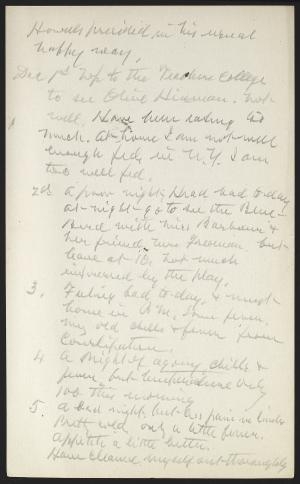 Howells presided in his usual
happy way.
Dec 1st up to the Teachers College
to see Olive Hinman. Not
well. Have been eating too
much. At home I am not well
enough fed, in N.Y. I am
too well fed.
2d. a poor night, Head bad to-day
at night go to see the Blue-
Bird with Miss Barbaui &
her friend, Mrs but
leave at 10. not much
impressed by the play.
3. Feeling bad to-day, & went
home in P.M. Some fever.
my old chills & fever from
Constipation.
4 A Night of agony, chills &
fever, but temperature only
100 this morning
5. A bad night, but less pain in limbs
only a little fever.
Appetite a little better.
Have cleaned myself out thoroughly